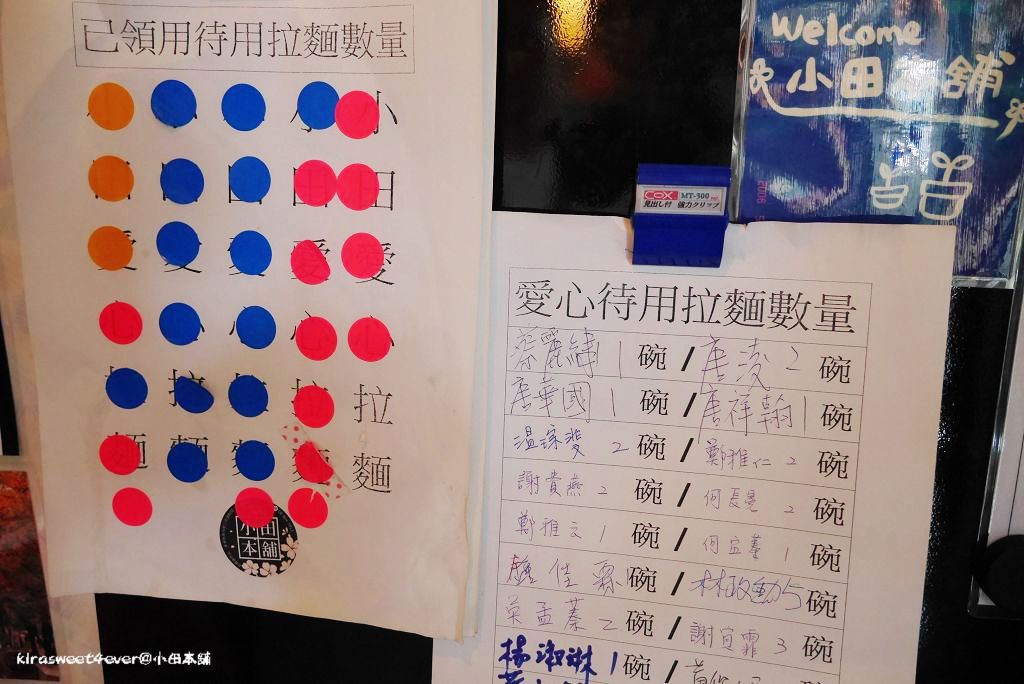 已領用待用拉麵數量
小
田
愛 愛
心 心 心
拉 拉 拉
麵 麵 麵 麵
小田本舖
Welcome
小田 舖
2006
COX MT-300
見出し付 強力クリップ
愛心待用拉麵數量
蔡麗緯 1 碗 / 唐淩 2 碗
唐華國 1 碗 / 唐祥翰 1 碗
溫 2 碗 / 鄭雅仁 2 碗
謝貴燕 2 碗 / 何長 2 碗
鄭雅文 1 碗 / 何宜蓁 1 碗
佳 碗 / 林政勳 5 碗
吳孟蓁 2 碗 / 謝宜霏 3 碗
楊淑琳 1 碗 /
kirasweet4ever@小田本舖